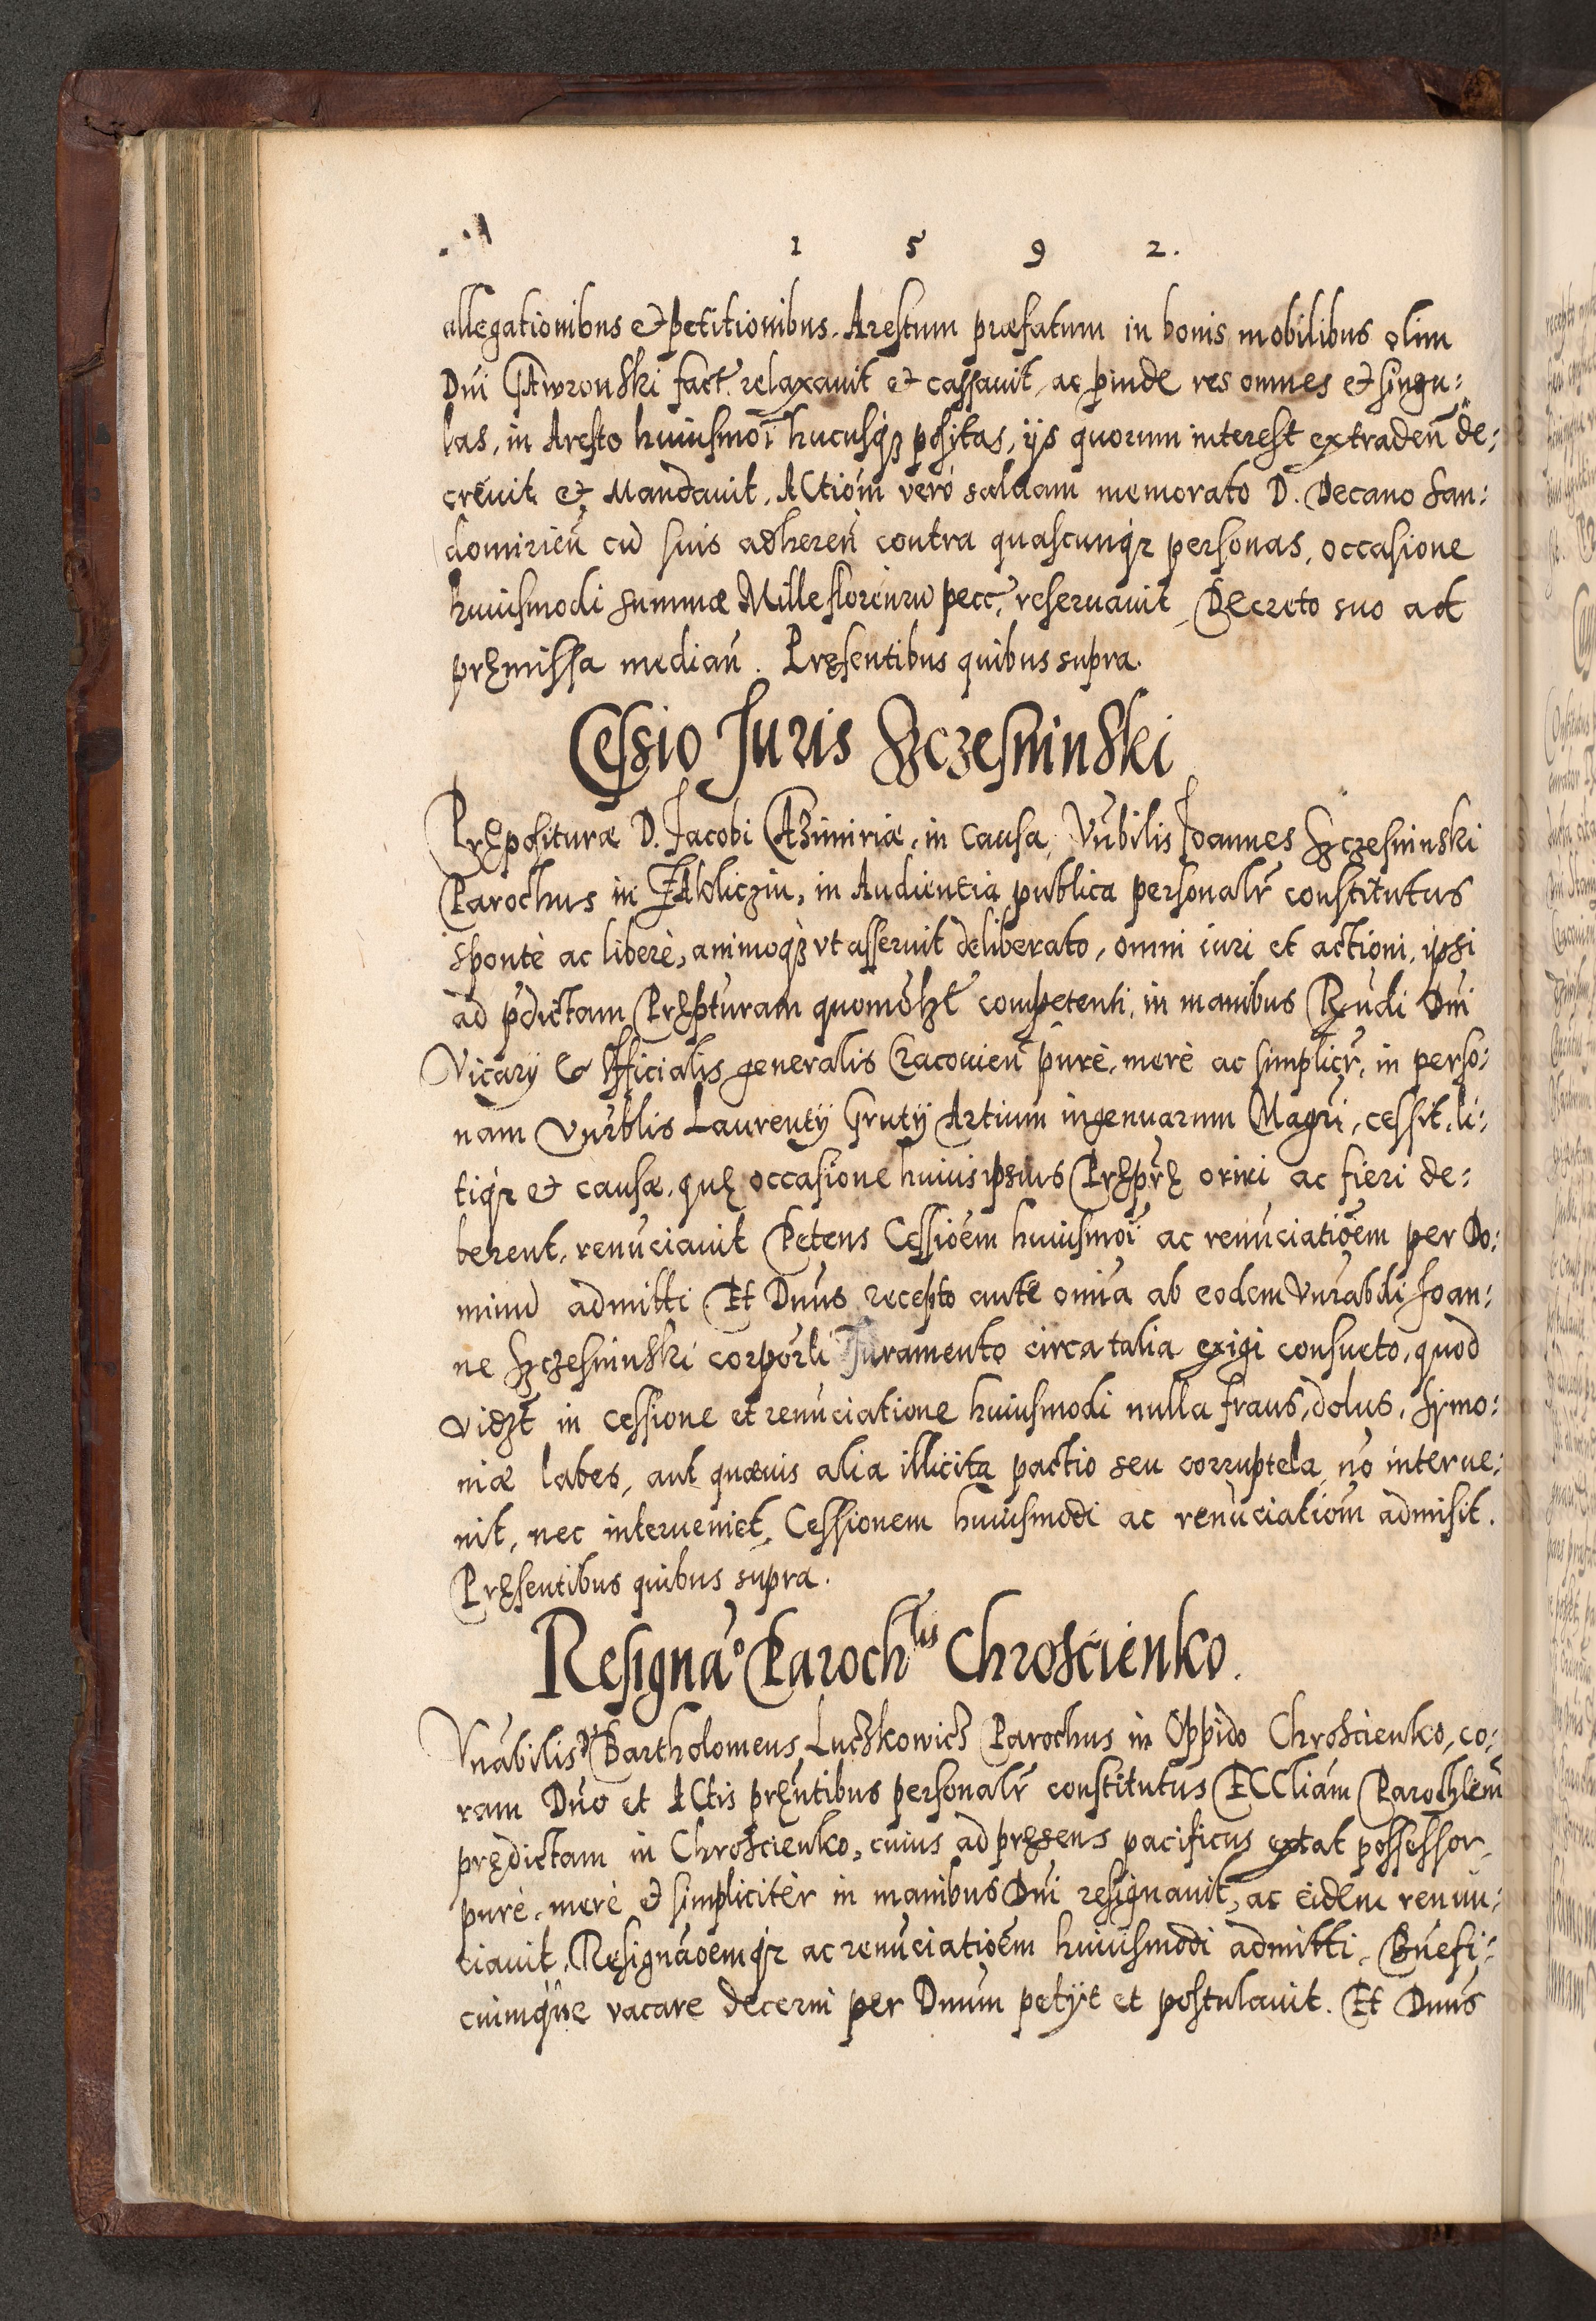 1 5 9 2.
allegationibus et petitionibus. Arestum præfatum in bonis mobilibus olim
Dni GAwronski fact. relaxauit et cassauit, ac ꝑinde res omnes et singu:
las, in Aresto huiusmoi hucusq₃ positas, ijs quorum interest extradeñ de:
creuit et Mandauit. ACtiom̃ verò saluam memorato D. Decano San:
domirieñ cũ suis adhereñ contra quascunq₃ personas, occasione
huiusmodi summæ Mille florenorũ pecc. reseruauit Decreto suo ad
pręmissa mediañ. Pręsentibus quibus supra.
Cessio Juris Szczesninski
Pręposituræ D. Jacobi CAzimiriæ, in causa, Vñbilis Joannes Szczesninski
Parochus in ZAkliczin, in Audientia publica personalr̃ constitutus
spontè ac liberè, animoq₃ vt asseruit deliberato, omni iuri et actioni, ipsi
ad p̃dictam Pręp̃turam quomõlz̃ competenti, in manibus Rñdi Dñi
Vicarij et Officialis generalis Cracouieñ purè, merè ac simplicr̃, in perso:
nam Vnr̃blis Laurentij Grutij Artium ingenuarum Magr̃i, cessit, li:
tiq₃ et causæ, quę occasione huius ipsius Pręp̃rę oriri ac fieri de:
berent, renũciauit Petens Cessiõem huiusmoi ac renũciatiõem per Do:
minũ admitti Et Dnũs recepto antè omĩa ab eodem Vnr̃abili Joan:
ne Szczesninski corpor̃li Juramento circa talia exigi consueto, quod
vidzt in cessione et renũciatione huiusmodi nulla fraus, dolus, Symo:
niæ labes, aut quæuis alia illicita pactio seu corruptela nõ interue:
nit, nec interueniet, Cessionem huiusmodi ac renũciatiom̃ admisit.
Pręsentibus quibus supra.
Resignã° Paroch̃lis Chroscienko.
Vnãbilis D. Bartholomeus Luczkowicz Parochus in Oppido Chroscienko, co:
ram Dño et ACtis pręñtibus personalr̃ constitutus ECCliam̃ Paroch̃lem
prędictam in Chroscienko, cuius ad pręsens pacificus extat possessor
purè, merè et simplicitèr in manibus Dñi resignauit, ac eidem renun:
ciauit, Resignãoemq₃ ac renũciatiõem huiusmodi admitti, Bñefi:
ciumq̃ue vacare decerni per Dnũm petijt et postulauit. Et Dnũs